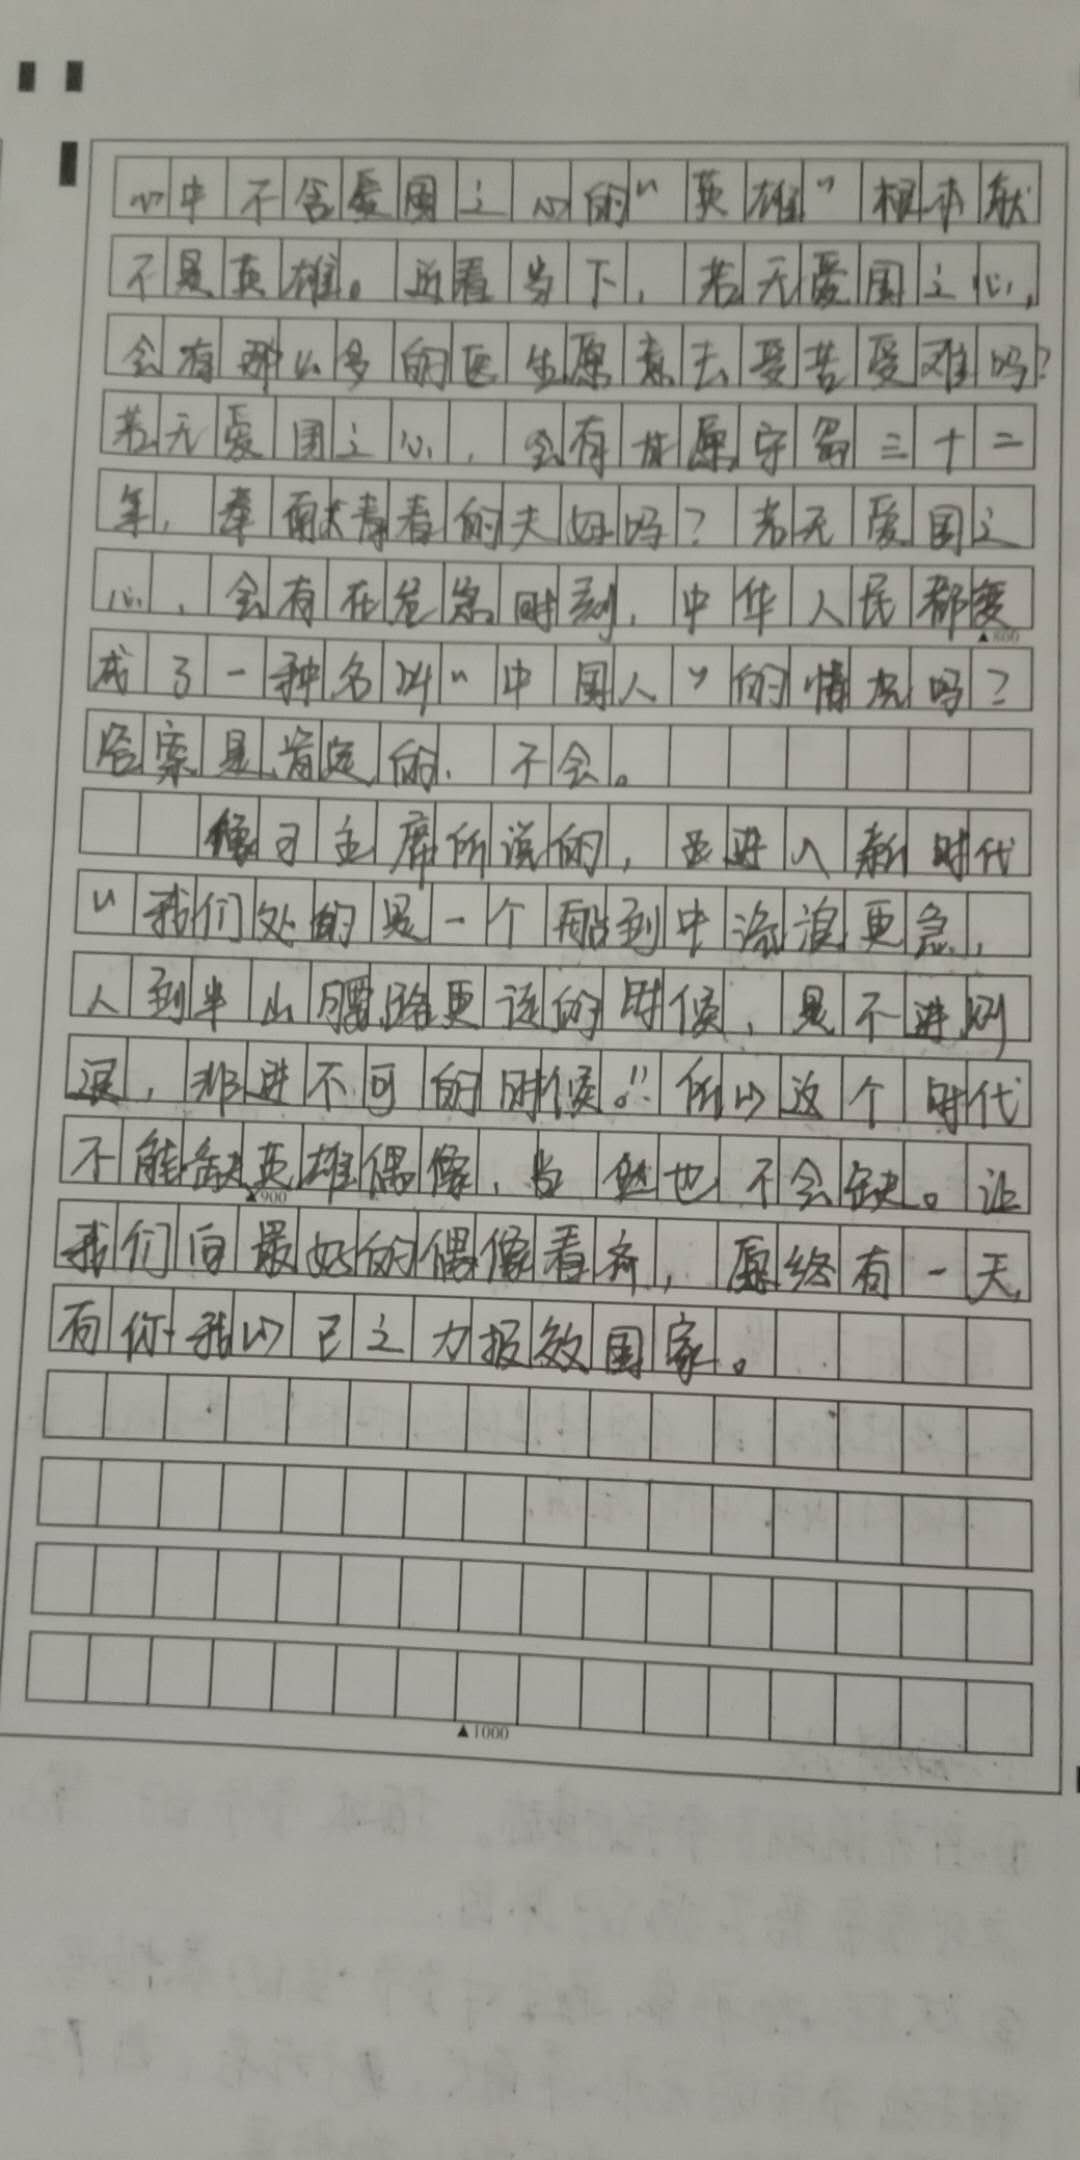 心中不含爱国之心的“英雄”根本就
不是英雄。近看当下，若无爱国之心，
会有那么多的医生愿意去受苦受难吗？
若无爱国之心，会有甘愿守岛三十二
年，牵青春的夫妇吗？若无爱国之
心，会有在危急时刻，中华人民都变
▲800
成了一种名叫“中国人”的情况吗？
答案是肯定的，不会。
像习主席所说的，进入新时代
“我们处的是一个船到中流浪更急，
人到半山腰路更的时候，是不进则
退，非进不可的时候。”所以这个时代
不能缺英雄偶像，当然也不会缺。让
▲900
我们向最好的偶像看齐，愿终有一天，
有你我以已之力报效国家。
▲1000